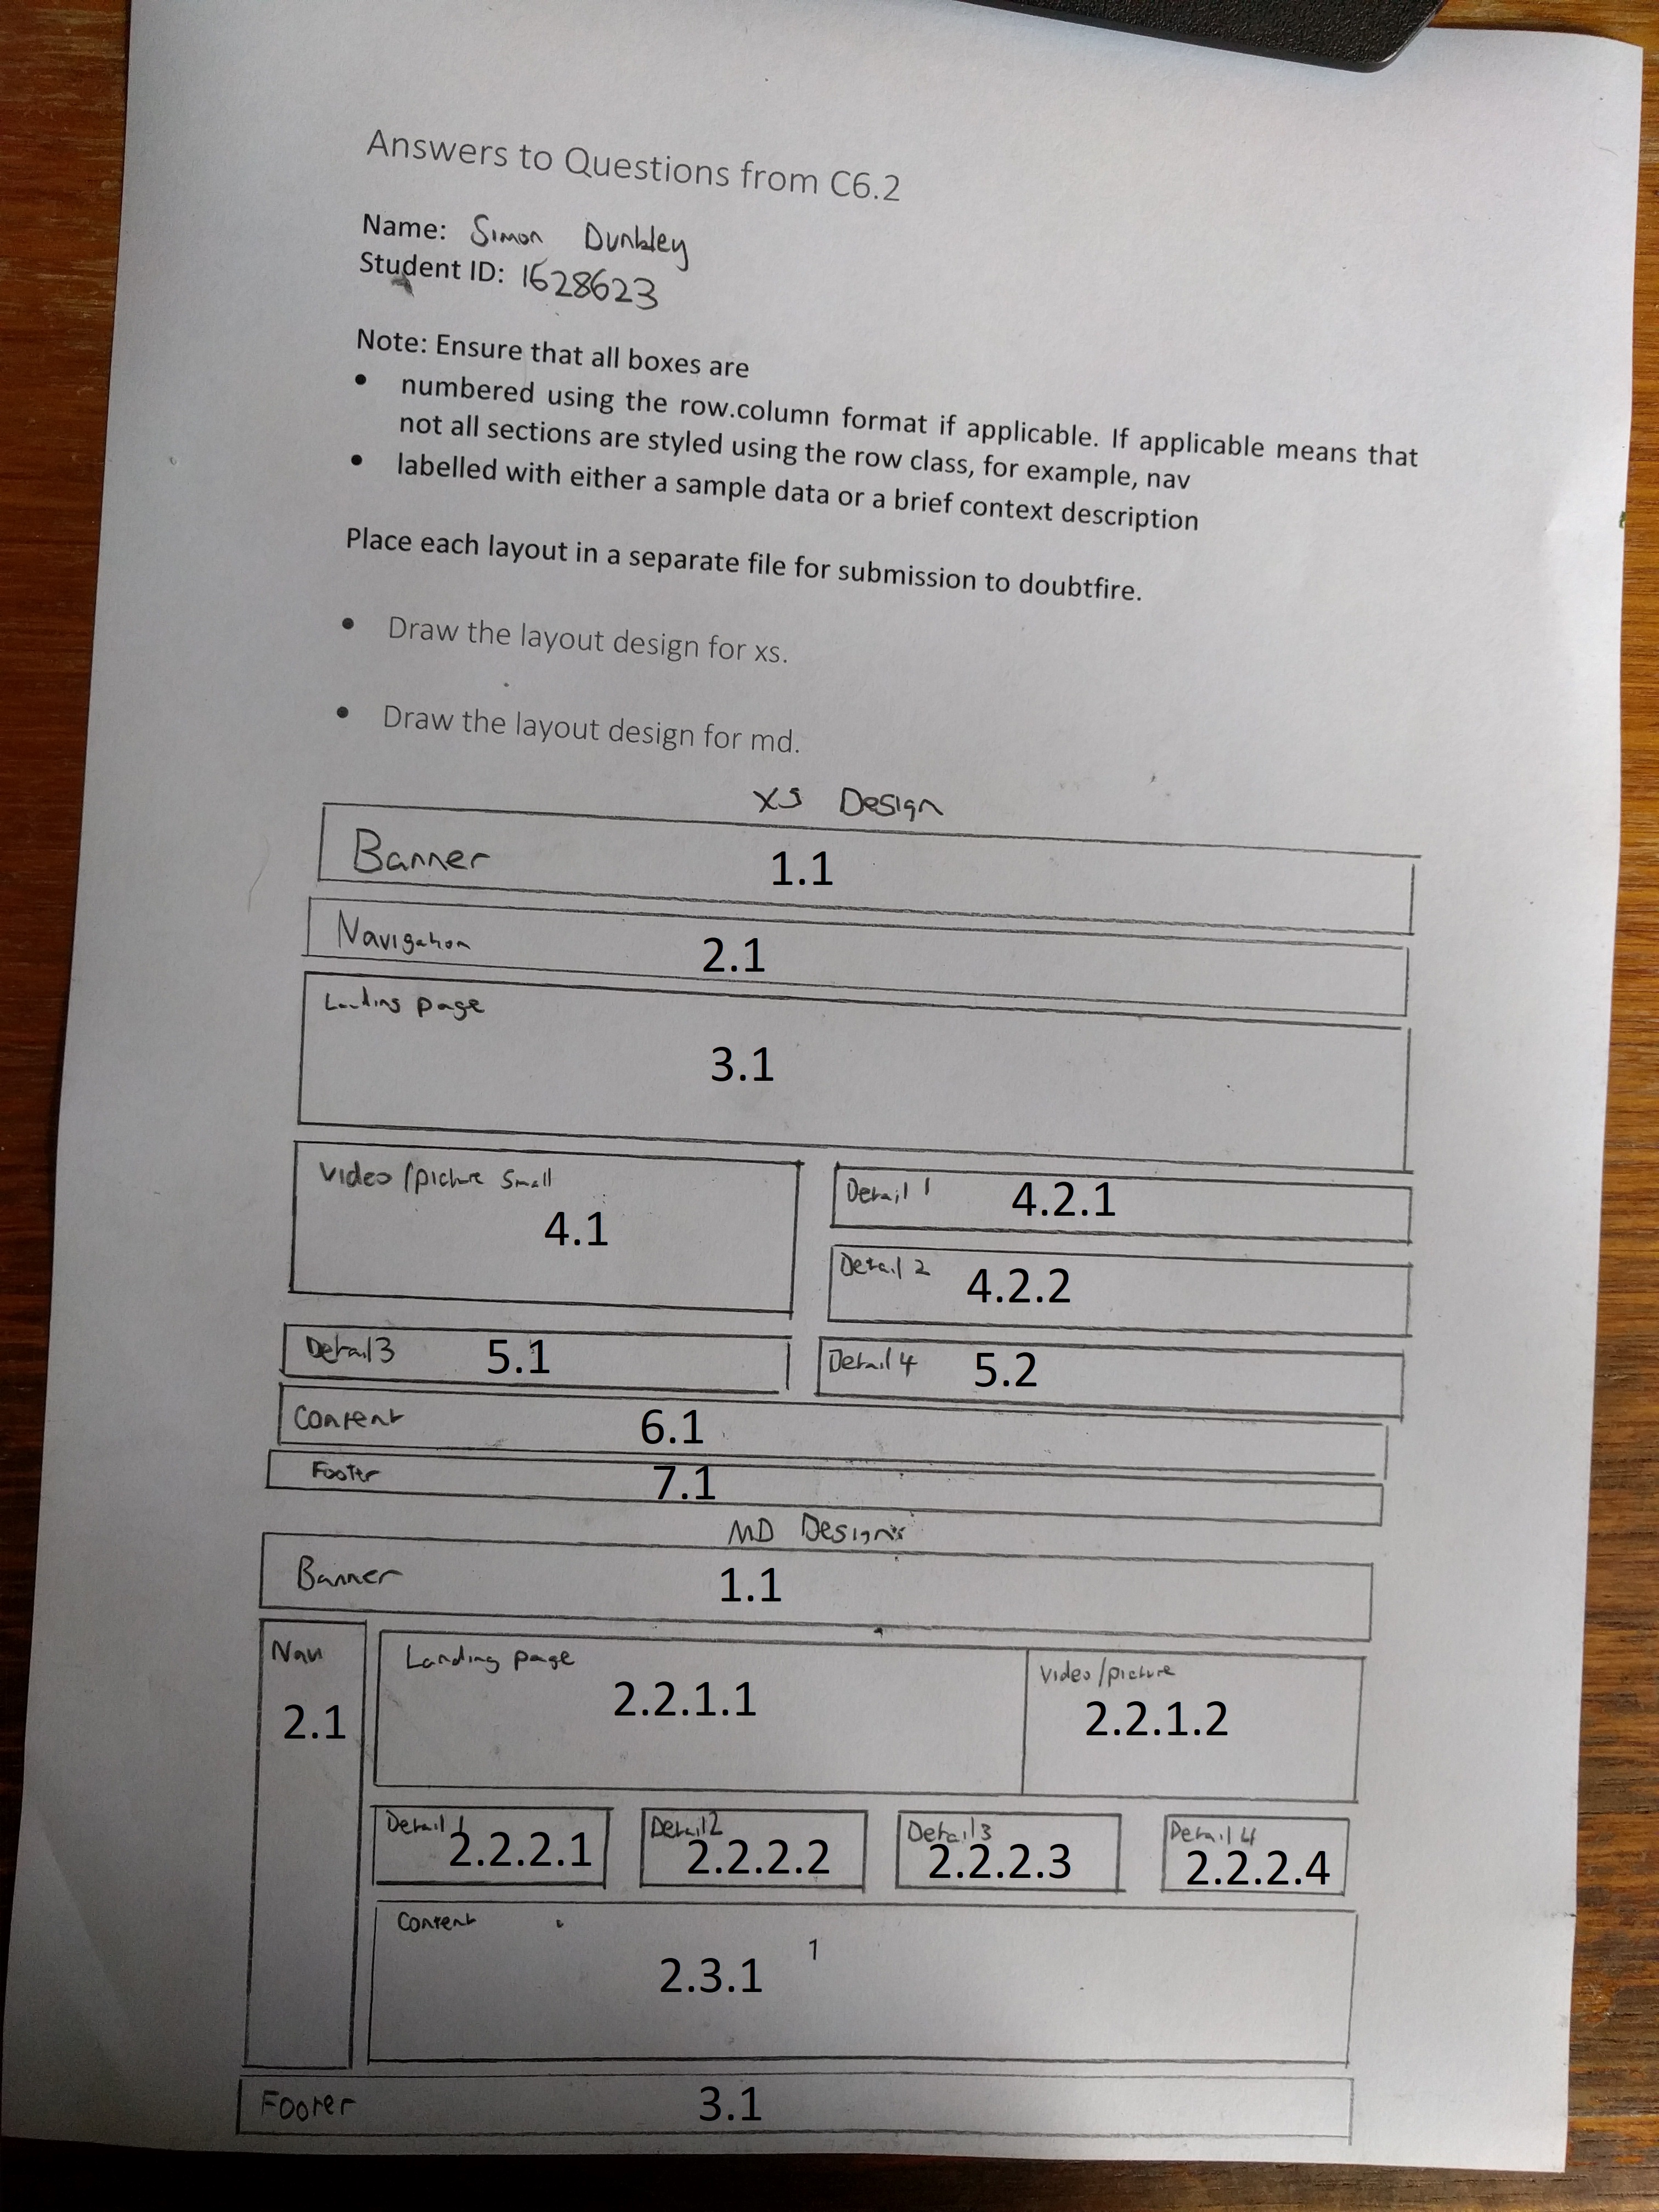 Answers to Questions from C6.2
Name: Simon Dunkley
Student ID: 1628623
Note: Ensure that all boxes are
• numbered using the row.column format if applicable. If applicable means that
not all sections are styled using the row class, for example, nav
• labelled with either a sample data or a brief context description
Place each layout in a separate file for submission to doubtfire.
• Draw the layout design for xs.
• Draw the layout design for md.
XS Design
Banner 1.1
Navigation 2.1
Landing page
3.1
Video/picture Small
4.1
Detail 1 4.2.1
Detail 2 4.2.2
Detail 3 5.1
Detail 4 5.2
Content 6.1
Footer 7.1
MD Design
Banner 1.1
Nav
2.1
Landing page
2.2.1.1
Video/picture
2.2.1.2
Detail 1
2.2.2.1
Detail 2
2.2.2.2
Detail 3
2.2.2.3
Detail 4
2.2.2.4
Content
1
2.3.1
Footer 3.1